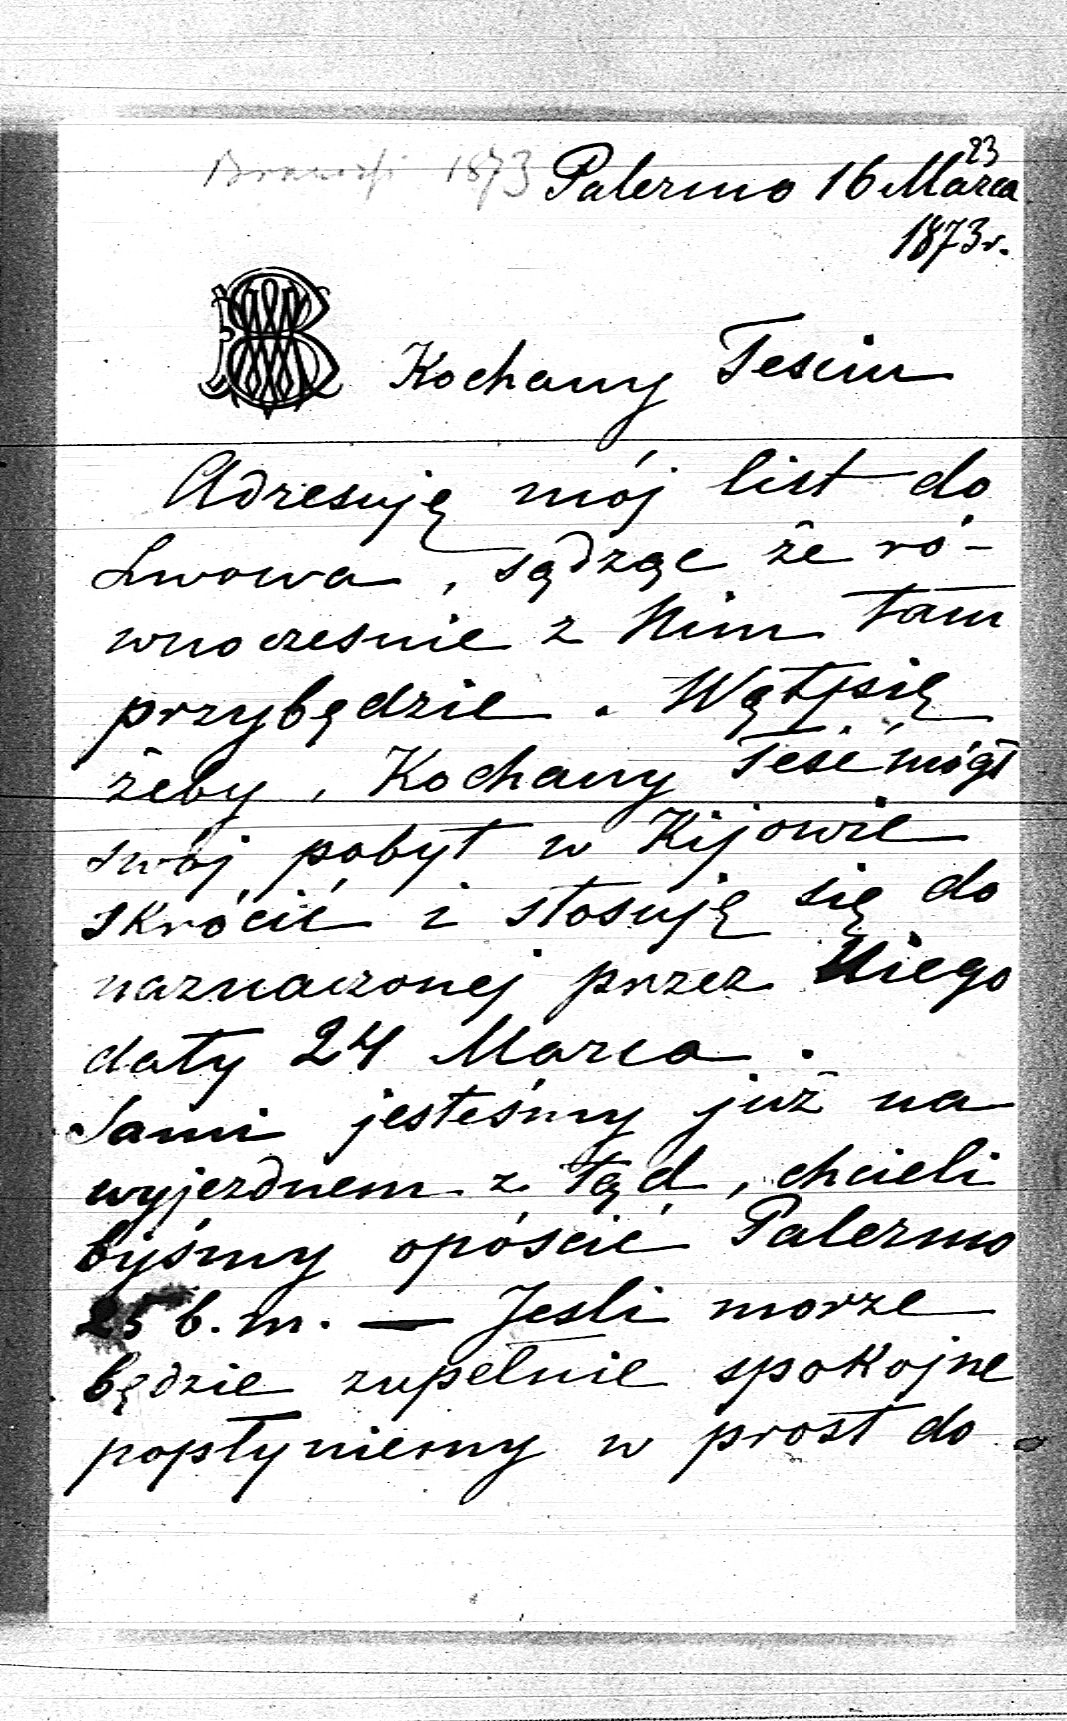 23
1873 Palermo 16 Marca
1873 r.
Kochany Tesciu
Adresuję mój list do
Lwowa, sądząc że ró-
wnoczesnie z Nim tam
przybędzie. Wątpię
żeby, Kochany Teść mógł
swój pobyt w Kijowie
skrócić i stosuję się do
naznaczonej przez Niego
daty 24 Marca.
Sami jesteśmy już na
wyjezdnem z tąd, chcieli
byśmy opóścić Palermo
25 b.m. — Jesli morze
będzie zupełnie spokojne
popłyniemy w prost do